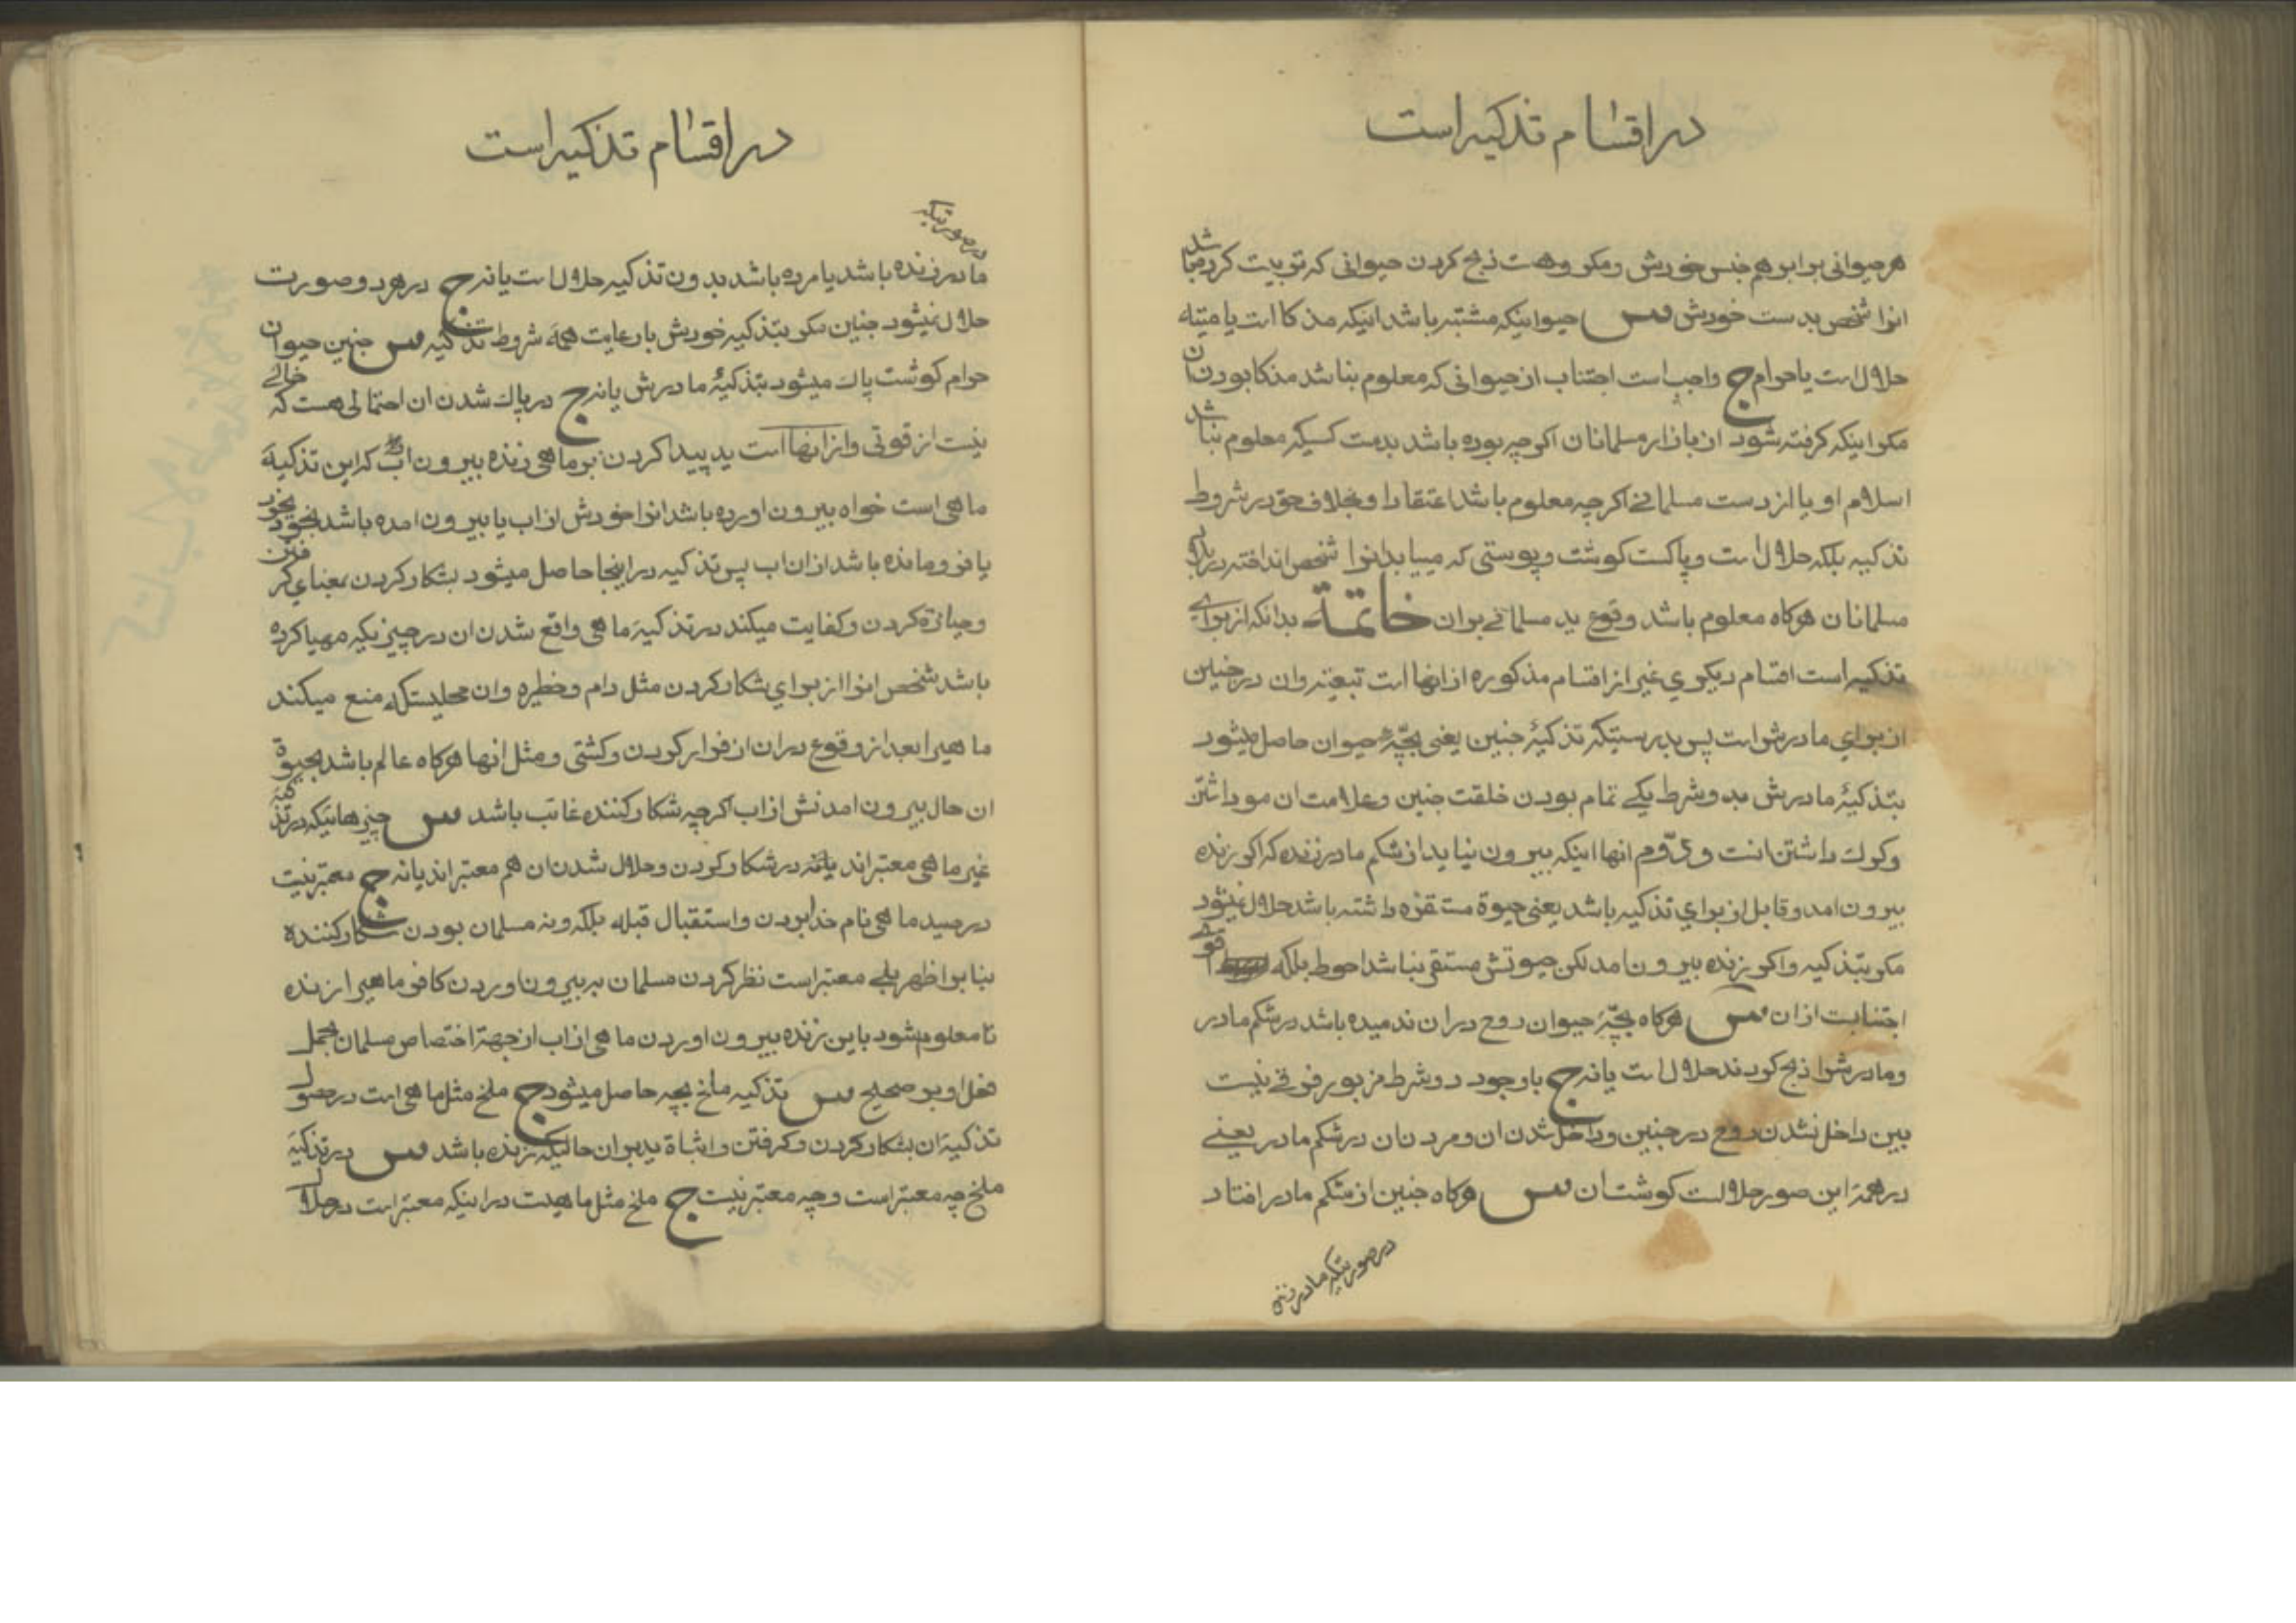 در اقسام تذکیه است
هر حیوانی برابر هم جنس خودش و مکروهست ذبح کردن حیوانی که تربیت کرده باشد
انرا شخص بدست خودش س حیوانیکه مشتبه باشد اینکه مذکا است یا میته
حلال است یا حرام ج واجب است اجتناب از حیوانی که معلوم نباشد مذکا بودن ان
مکر اینکه کرفته شود از بازار مسلمانان اکرچه بوده باشد بدست کسیکه معلوم نباشد
اسلام او یا از دست مسلمانی اکرچه معلوم باشد اعتقاد او بخلاف حق در شروط
تذکیه بلکه حلال است و پاکست کوشت و پوستی که مییابد انرا شخص انداخته در بلاد
مسلمانان هرکاه معلوم باشد وقوع ید مسلمانی بران خاتمة بدانکه از برای
تذکیه است اقسام دیکری غیر از اقسام مذکوره از انها است تبعیته وان در جنین
از برای مادرش است پس بدرستیکه تذکیهٔ جنین یعنی بچّهٔ حیوان حاصل میشود
بتذکیهٔ مادرش بدو شرط یکی تمام بودن خلقت جنین و علامت ان مو داشتن
و کرك داشتن انست و دوّم انها اینکه بیرون نیاید از شکم مادر زنده که اکر زنده
بیرون امد و قابل از برای تذکیه باشد یعنی حیوة مستقره داشته باشد حلال نمیشود
مکر بتذکیه و اکر زنده بیرون نامد لکن حیوتش مستقر نباشد احوط بلکه اقوی
اجتنابت از ان س هرکاه بچّهٔ حیوان روح در ان ندمیده باشد در شکم مادر
و مادرش را ذبح کردند حلال است یا نه ج با وجود دو شرط مزبور فرقی نیست
بین داخل نشدن روح در جنین و داخل شدن ان و مردن ان در شکم مادر یعنی
در همهٔ این صور حلالست کوشت ان س هرکاه جنین از شکم مادر افتاد
در صورتیکه مادر زنده
در اقسام تذکیه است
در صورتیکه
مادر زنده باشد یا مرده باشد بدون تذکیه حلال است یا نه ج در هردو صورت
حلال نمیشود جنین مکر بتذکیه خودش با رعایت همهٔ شروط تذکیه س جنین حیوان
حرام کوشت پاك میشود بتذکیهٔ مادرش یا نه ج در پاك شدن ان احتمالی هست که خالی
نیست از قوتی و از انها است ید پیدا کردن بر ماهی زنده بیرون اب که این تذکیهٔ
ماهی است خواه بیرون اورده باشد انرا خودش از اب یا بیرون امده باشد بخودی خود
یا فرو مانده باشد از ان اب پس تذکیه در اینجا حاصل میشود بشکار کردن بمعنای کرفتن
و حیازة کردن و کفایت میکند در تذکیهٔ ماهی واقع شدن ان در چیزیکه مهیا کرده
باشد شخص انرا از برای شکار کردن مثل دام و خطیره وان محلیستکه منع میکند
ماهیرا بعد از وقوع در ان از فرار کردن و کشتی و مثل انها هرکاه عالم باشد بحیوة
ان حال بیرون امدنش از اب اکرچه شکار کننده غائب باشد س چیزهائیکه در تذکیهٔ
غیر ماهی معتبراند در شکار کردن و حلال شدن ان هم معتبراند یا نه ج معتبر نیست
در صید ماهی نام خدا بردن و استقبال قبله بلکه و نه مسلمان بودن شکار کننده
بنا بر اظهر بلی معتبر است نظر کردن مسلمان بر بیرون اوردن کافر ماهیرا زنده
تا معلوم شود باین زنده بیرون اوردن ماهی از اب از جهة اختصاص مسلمان بحمل
فعل او بر صحیح س تذکیه ملخ بچه حاصل میشود ج ملخ مثل ماهی است در حصول
تذکیهٔ ان بشکار کردن و کرفتن و اثباة ید بر ان حالیکه زنده باشد س در تذکیهٔ
ملخ چه معتبر است و چه معتبر نیست ج ملخ مثل ماهیست در اینکه معتبر است در حلال